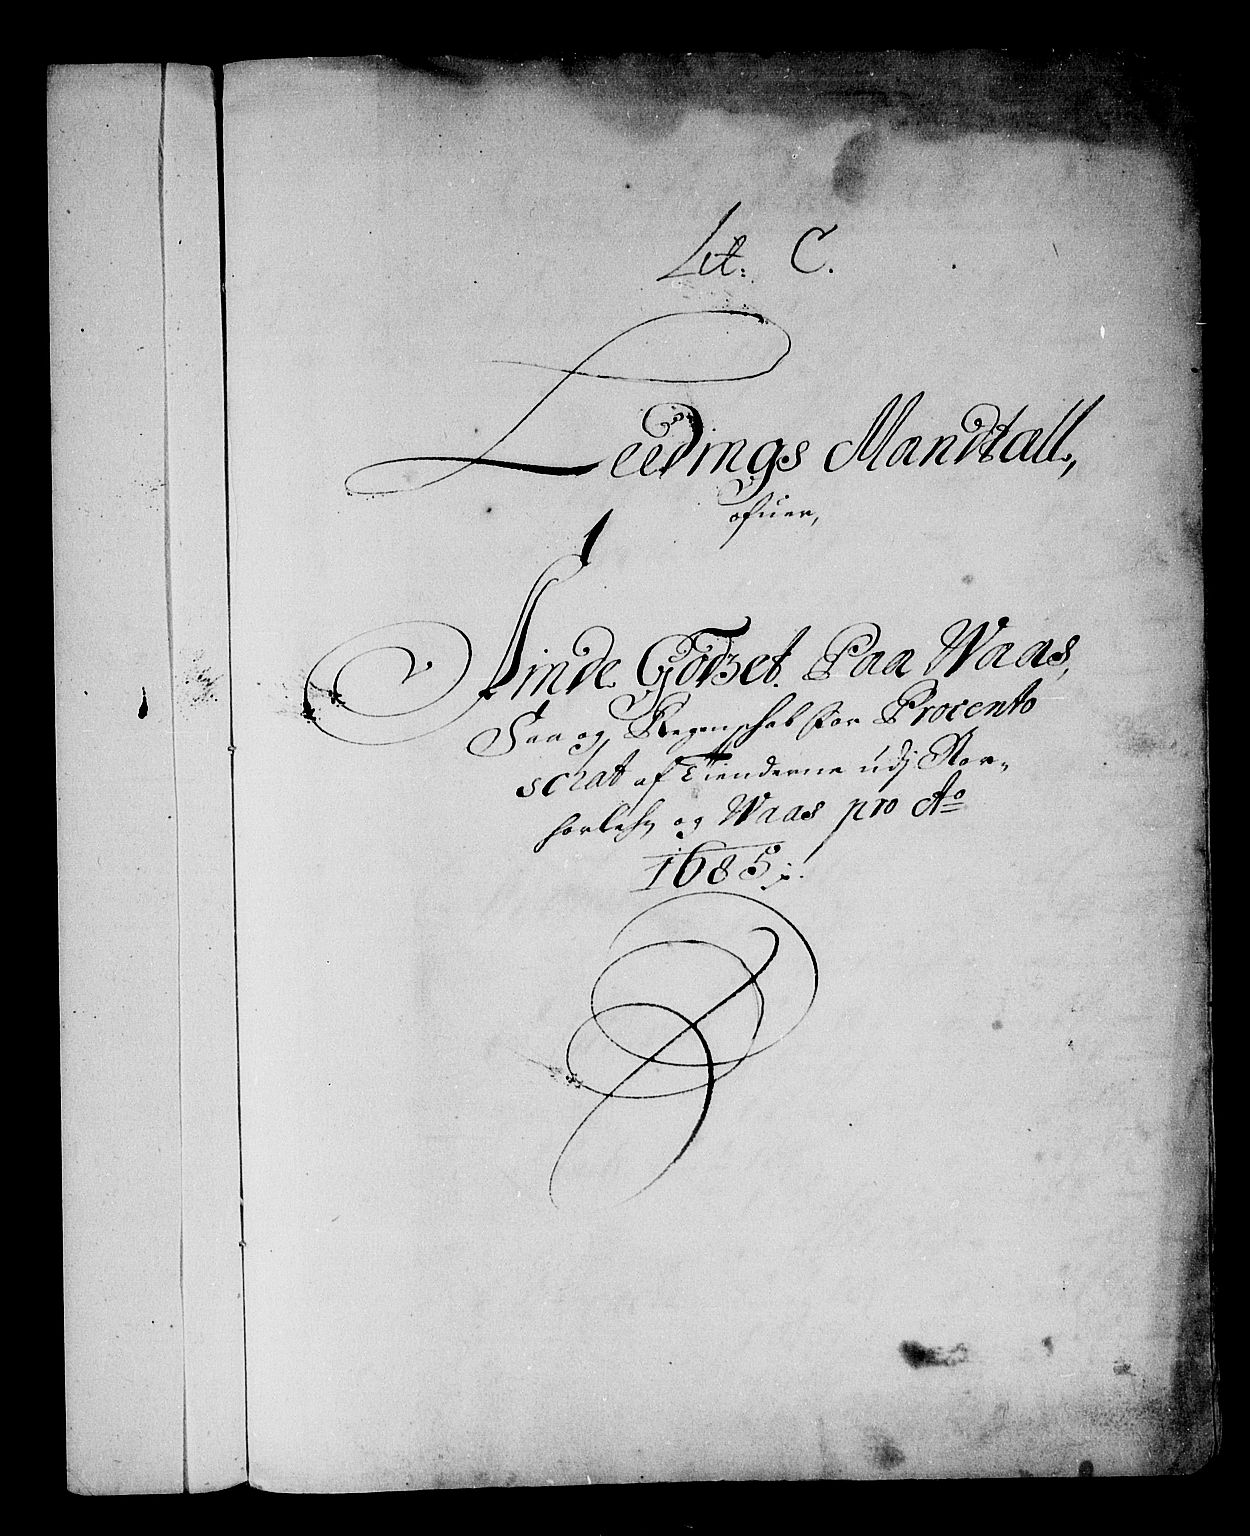 Lit: C.
Leedings Mandtall,
ofuer,
Finde Godzet. Paa Waas,
Saa og Regenschab for Procento
schat af Tienderne udj Nor-
horlehn og Waas pro Ao
1685:/: